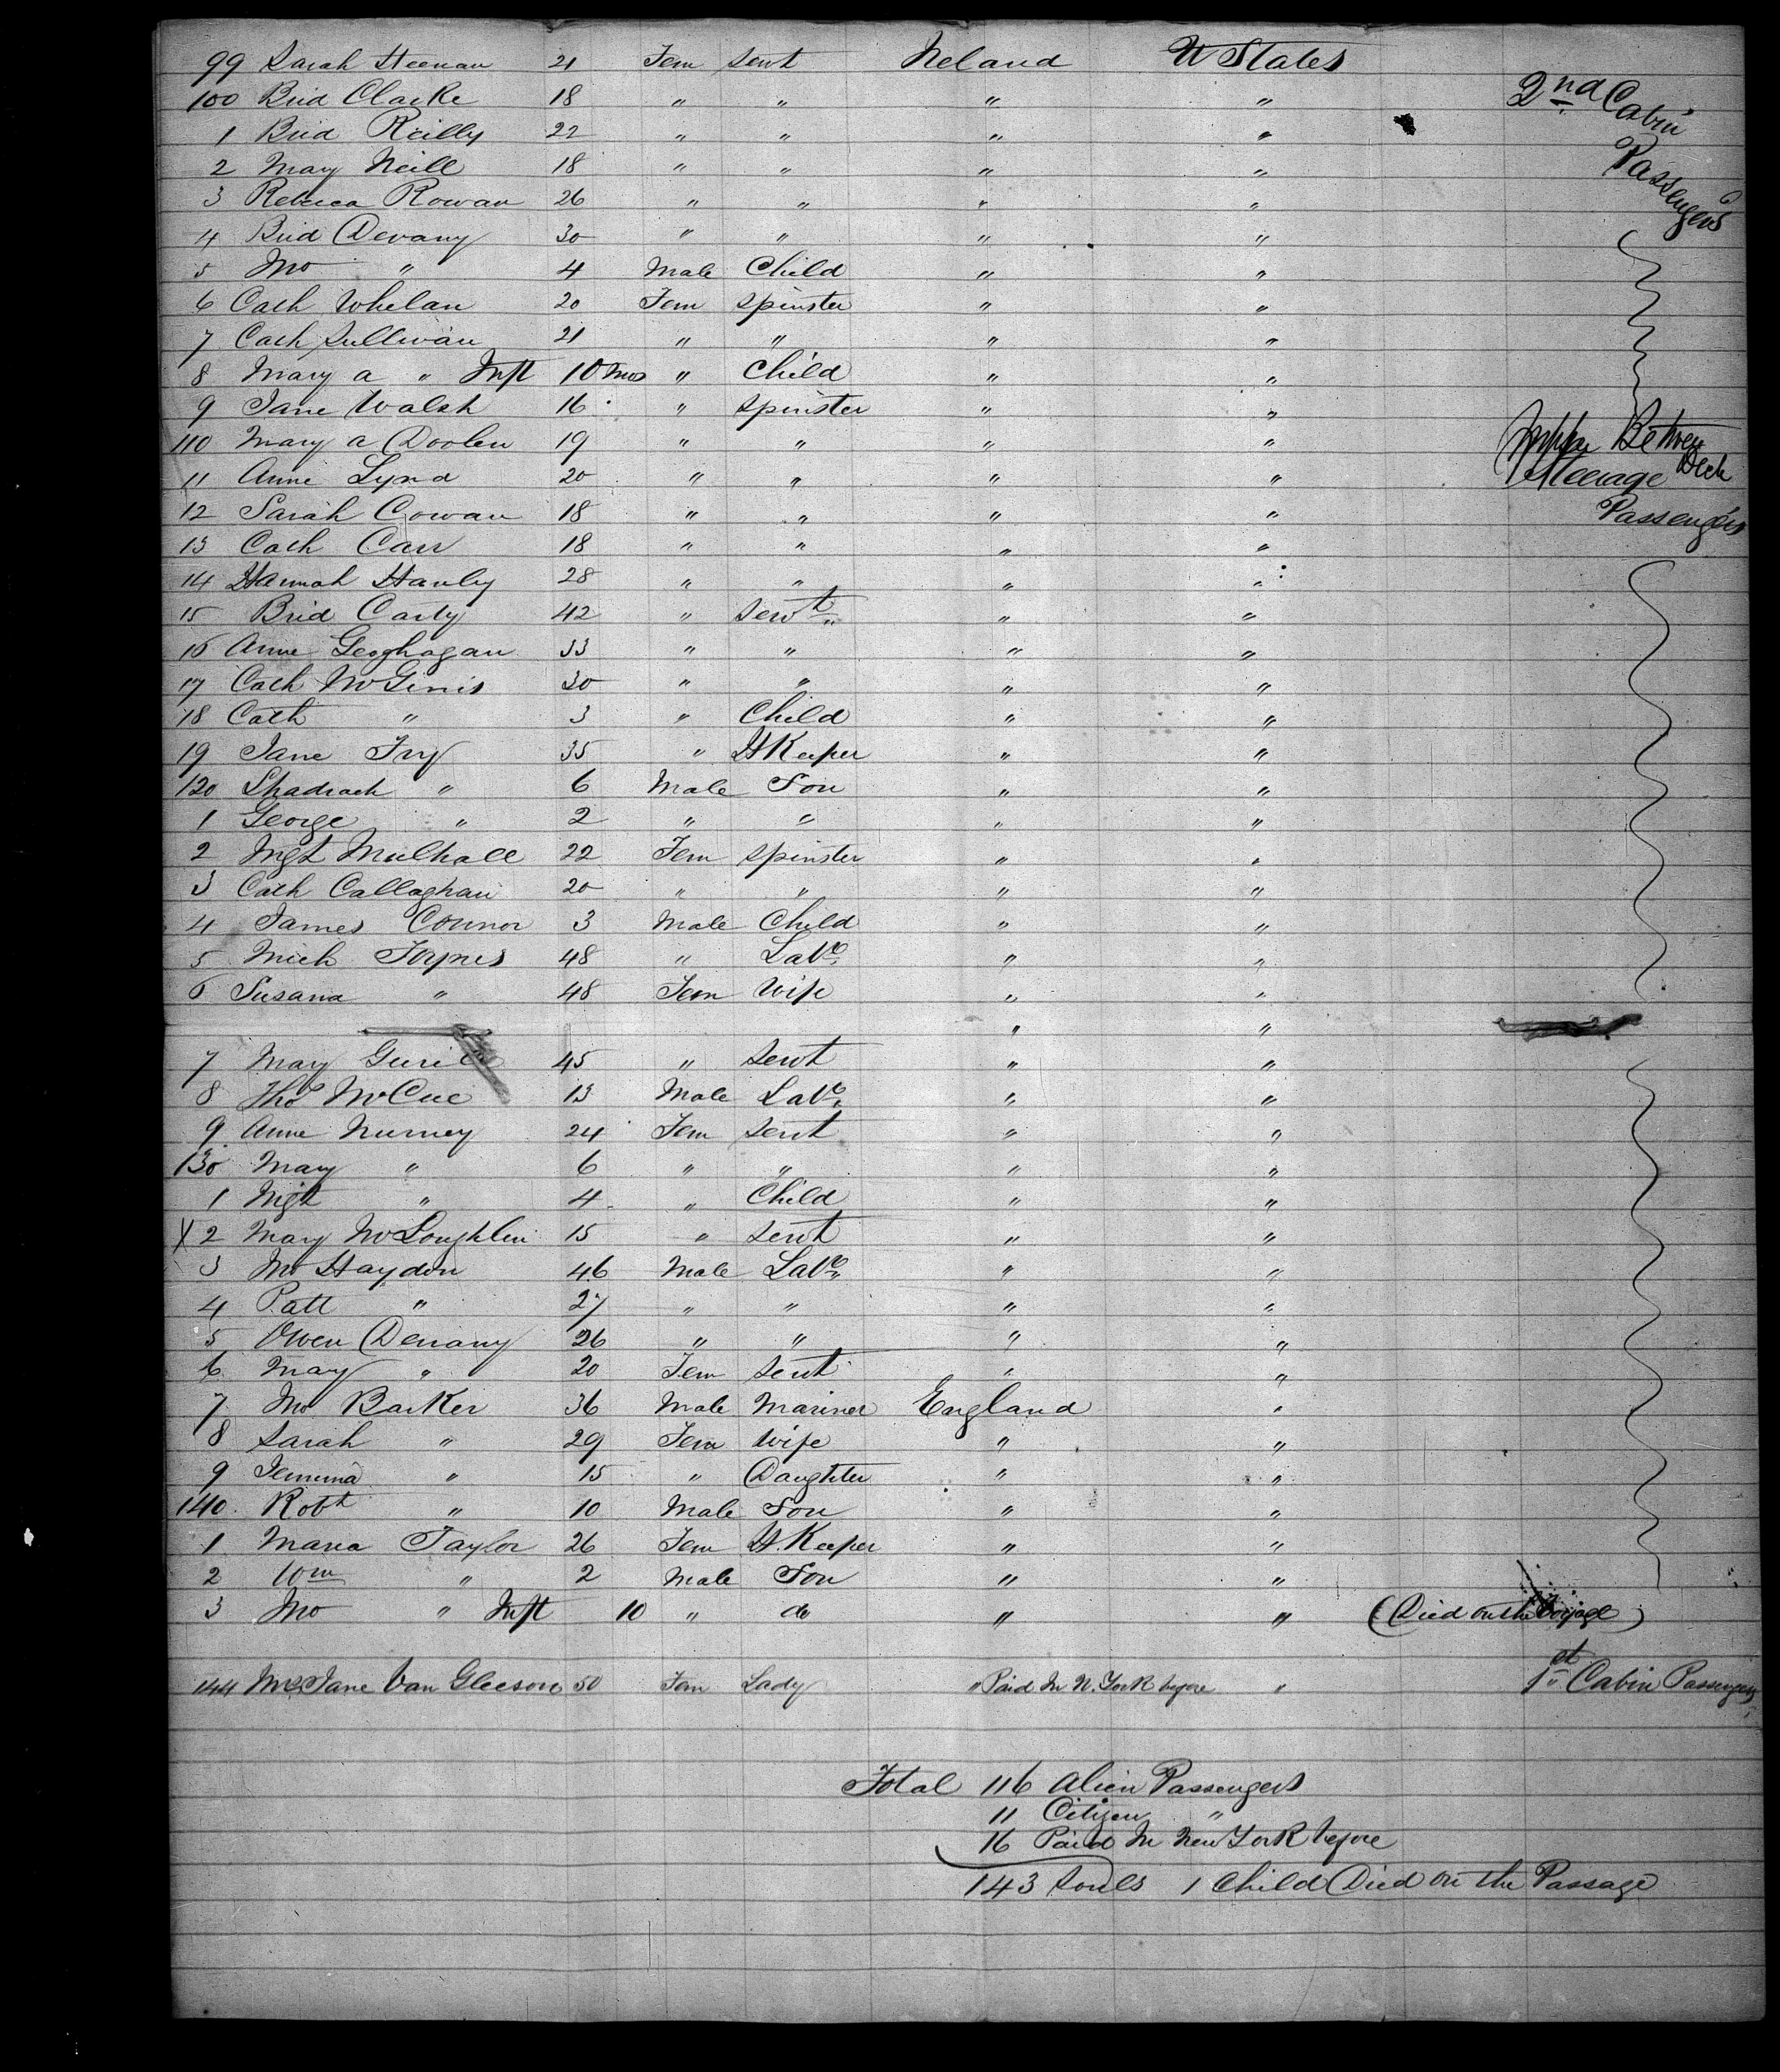 99 Sarah Heenan 21 Fem Servt Ireland U States
100 Brid Clarke 18 " " " " 2nd Cabin
1 Brid Reilly 22 " " " "
2 Mary Neill 18 " " " " Passengers
3 Rebecca Rowan 26 " " " "
4 Brid Devany 30 " " " "
5 Jno " 4 Male Child " "
6 Cath Whelan 20 Fem Spinster " "
7 Cath Sullivan 21 " " " "
8 Mary a " Inft 10 Mos " Child " "
9 Jane Walsh 16 " Spinster " "
110 Mary a Doolen 19 " " " " Between
11 Anne Lynd 20 " " " " Deck Steerage
12 Sarah Cowan 18 " " " " Passengers
13 Cath Carr 18 " " " "
14 Hannah Hanley 28 " " " "
15 Brid Carty 42 " Servt " "
16 Anne Geoghagan 33 " " " "
17 Cath McGinis 30 " " " "
18 Cath " 3 " Child " "
19 Jane Fry 35 " H Keeper " "
120 Shadrach " 6 Male Son " "
1 George " 2 " " " "
2 Mgt Mulhall 22 Fem Spinster " "
3 Cath Callaghan 20 " " " "
4 James Connor 3 Male Child " "
5 Mich Joynes 48 " Labr " "
6 Susana " 48 Fem Wife " "
" "
7 Mary 45 " Servt " "
8 Thos McCue 13 Male Labr " "
9 Anne Nurney 24 Fem Servt " "
130 Mary " 6 " " " "
1 Mgt " 4 " Child " "
X 2 Mary McLoughlin 15 " Servt " "
3 Jno Haydon 46 Male Labr " "
4 Patt " 27 " " " "
5 Owen Devany 26 " " " "
6 Mary " 20 Fem Servt " "
7 Jno Barker 36 Male Mariner England "
8 Sarah " 29 Fem Wife " "
9 Jemima " 15 " Daughter " "
140 Robt " 10 Male Son " "
1 Maria Taylor 26 Fem H. Keeper " "
2 Wm " 2 Male Son " "
3 Jno " Inft 10 " do " " (Died on the Voyage)
144 Mrs Jane Van Gleeson 50 Fem Lady " Paid In N. York before " 1st Cabin Passengers
Total 116 Alien Passengers
11 Citizen "
16 Paid In New York before
143 Souls 1 Child Died on the Passage